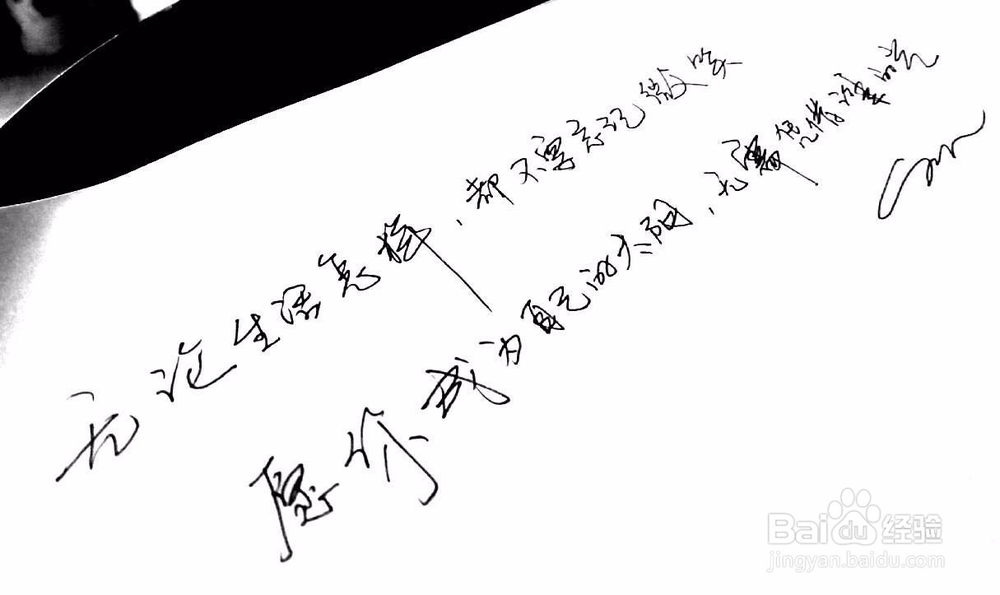 无论生活怎样,都不要忘记微笑
愿你成为自己的太阳,无需凭借谁的光
Baidu经验
jingyan.baidu.com